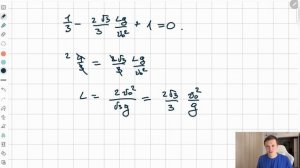 1/3 - 2√3/3 Lg/v₀² + 1 = 0.
2 4/3 = 2√3/3 Lg/v₀²
L = 2v₀²/√3g = 2√3/3 v₀²/g